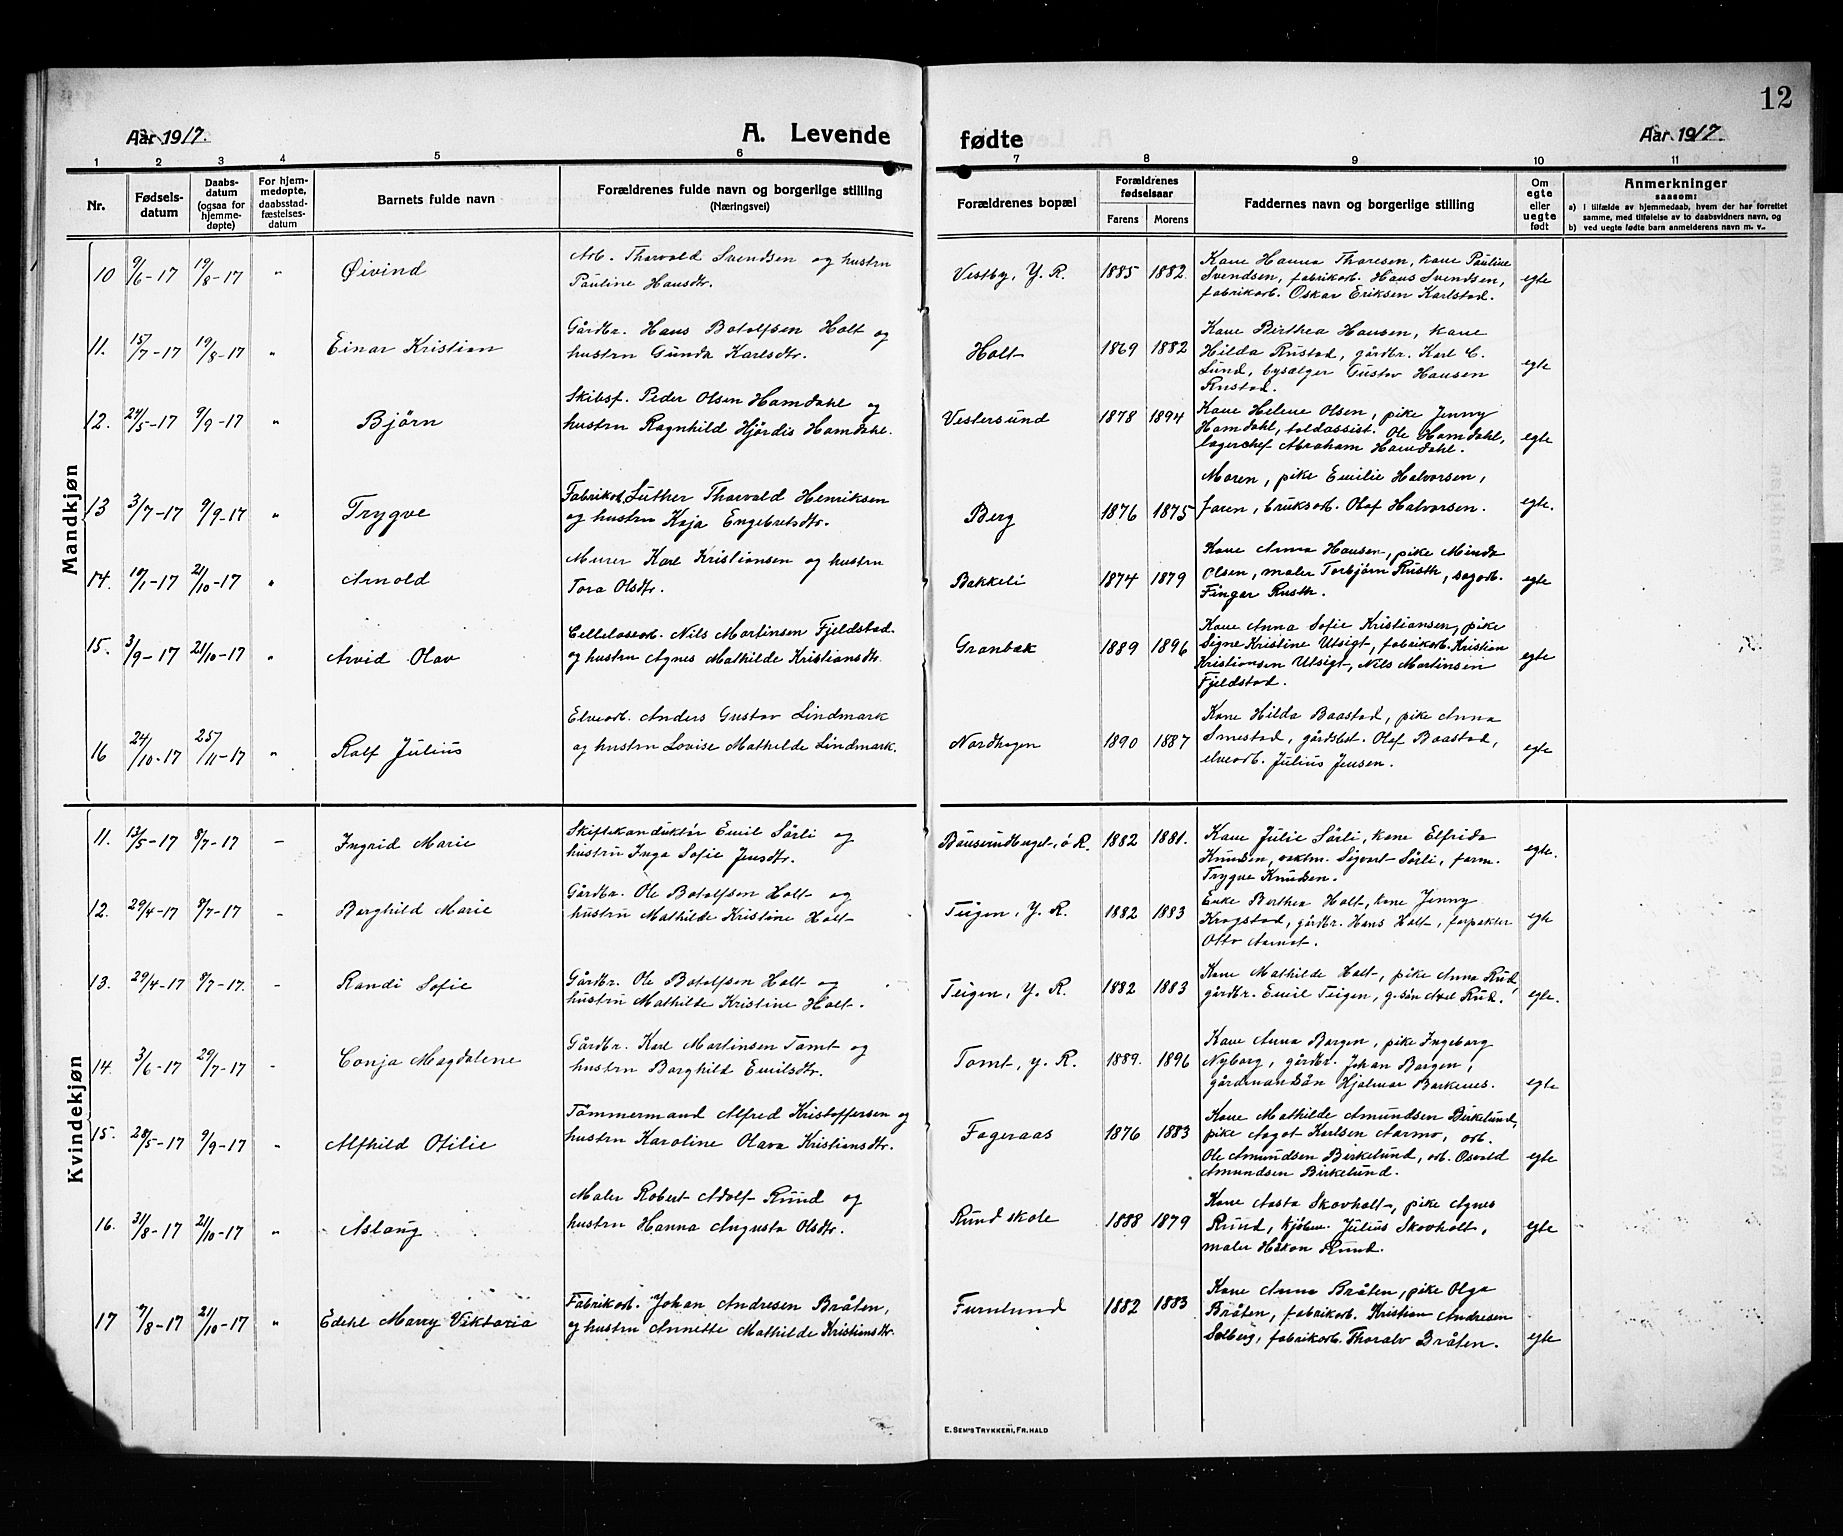 12
Aar 1917.
A. Levende
fødte
Aar 1917.
1 2 3 4 5 6 7 8 9 10 11
Nr.
Fødselsdatum
Daabsdatum (ogsaa for hjemmedøpte)
For hjemmedøpte, daabsstadfæstelsesdatum
Barnets fulde navn
Forældrenes fulde navn og borgerlige stilling
(Næringsvei)
Forældrenes bopæl
Forældrenes fødselsaar
Farens Morens
Faddernes navn og borgerlige stilling
Om egte eller uegte født
Anmerkninger
saasom:
a) i tilfælde av hjemmedaab, hvem der har forrettet samme, med tilføielse av to daabsvidners navn, og
b) ved uegte fødte barn anmelderens navn m. v.
Mandkjøn
10 9/6-17 19/8-17 " Øivind
Arb. Thorvald Svendsen og hustru
Pauline Hansdtr.
Vestby, Y. R. 1885 1882.
Kone Hanna Thoresen, kone Pauline
Svendsen, fabrikarb. Hans Svendsen,
fabrikarb. Oskar Eriksen Karlstad.
egte
11. 15/7-17 19/8-17 " Einar Kristian
Gårdbr. Hans Botolfsen Holt og
hustru Gunda Karlsdtr.
Holt 1869 1882
Kone Berthea Hansen, kone
Hilda Rustad, gårdbr. Karl C.
Lund, bysælger Gustav Hansen
Rustad.
egte
12. 24/5-17 9/9-17 " Bjørn
Skibsf. Peder Olsen Hamdahl og
hustru Ragnhild Hjørdis Hamdahl.
Vestersund 1878 1894
Kone Helene Olsen, pike Jenny
Hamdahl, toldassist. Ole Hamdahl,
lagerchef Abraham Hamdahl.
egte
13 3/7-17 9/9-17 " Trygve
Fabrikarb. Luther Thorvald Henriksen
og hustru Kaja Engebretsdtr.
Berg 1876 1875
Moren, pike Emilie Halvorsen,
faren, bruksarb. Olaf Halvorsen.
egte.
14. 19/1-17 21/10-17 " Arnold
Murer Karl Kristiansen og hustru
Tora Olsdtr.
Bakkeli 1874 1879
Kone Anna Hansen, pike Minda
Olsen, maler Torbjørn Rusth, sagarb.
Fingar Rusth.
egte
15. 3/9-17 21/10-17 " Arvid Olav
Cellelosearb. Nils Martinsen Fjeldstad
og hustru Agnes Mathilde Kristiansdtr.
Granbæk 1889 1896
Kone Anna Sofie Kristiansen, pike
Signe Kristine Utsigt, fabrikarb. Kristian
Kristiansen Utsigt, Nils Martinsen
Fjeldstad.
egte
16 24/10-17 25/11-17 " Rolf Julius
Elvearb. Anders Gustav Lindmark
og hustru Lovise Mathilde Lindmark.
Nordhagen 1890 1887
Kone Hilda Baastad, pike Anna
Smestad, gårdsbst. Olaf Baastad,
elvearb. Julius Jensen.
egte
Kvindekjøn
11. 13/5-17 8/7-17 - Ingrid Marie
Skiftekonduktør Emil Sørli og
hustru Inga Sofie Jensdtr.
Bauserudhaget, ø R. 1882 1881.
Kone Julie Sørli, kone Elfrida
Knudsen, vaktm. Sigvart Sørli, form.
Trygve Knudsen.
egte.
12. 29/4-17 8/7-17 - Borghild Marie
Gårdbr. Ole Botolfsen Holt og
hustru Mathilde Kristine Holt
Teigen, Y. R. 1882 1883
Enke Berthea Holt, kone Jenny
Krogstad, gårdbr. Hans Holt, forpakter
Otto Aamot.
egte
13. 29/4-17 8/7-17. - Randi Sofie
Gårdbr. Ole Botolfsen Holt og
hustru Mathilde Kristine Holt.
Teigen, Y. R. 1882 1883
Kone Mathilde Holt, pike Anna Rud,
gårdbr. Emil Teigen, g.søn Axel Rud.
egte.
14. 3/6-17 29/7-17 - Conja Magdalene
Gårdbr. Karl Martinsen Tomt og
hustru Borghild Emilsdtr.
Tomt, y. R. 1889. 1896
Kone Anna Borgen, pike Ingeborg
Nyborg, gårdbr. Johan Borgen,
gårdmandsøn Hjalmar Berkenes.
egte
15. 28/5-17 9/9-17 " Alfhild Otilie
Tømmermand Alfred Kristoffersen og
hustru Karoline Olava Kristiansdtr.
Fageraas 1876 1883
Kone Mathilde Amundsen Birkelund,
pike Aagot Karlsen Aarmo, arb.
Ole Amundsen Birkelund, arb. Osvald
Amundsen Birkelund.
egte
16. 31/8-17 21/10-17 " Aslaug
Maler Robert Adolf Ruud og
hustru Hanna Augusta Olsdtr.
Rund skole 1888 1879
Kone Aasta Skovholt, pike Agnes
Ruud, kjøbm. Julius Skovholt,
maler Håkon Ruud.
egte
17 7/8-17 21/10-17 " Edehl Marry Viktoria
Fabrikarb. Johan Andresen Bråten,
og hustru Annette Mathilde Kristiansdtr.
Furulund 1882 1883
Kone Anna Bråten, pike Olga
Bråten, fabrikarb. Kristian Andresen
Solberg, fabrikarb. Thoralv Bråten.
egte
E. Sem's Trykkeri, Fr.hald